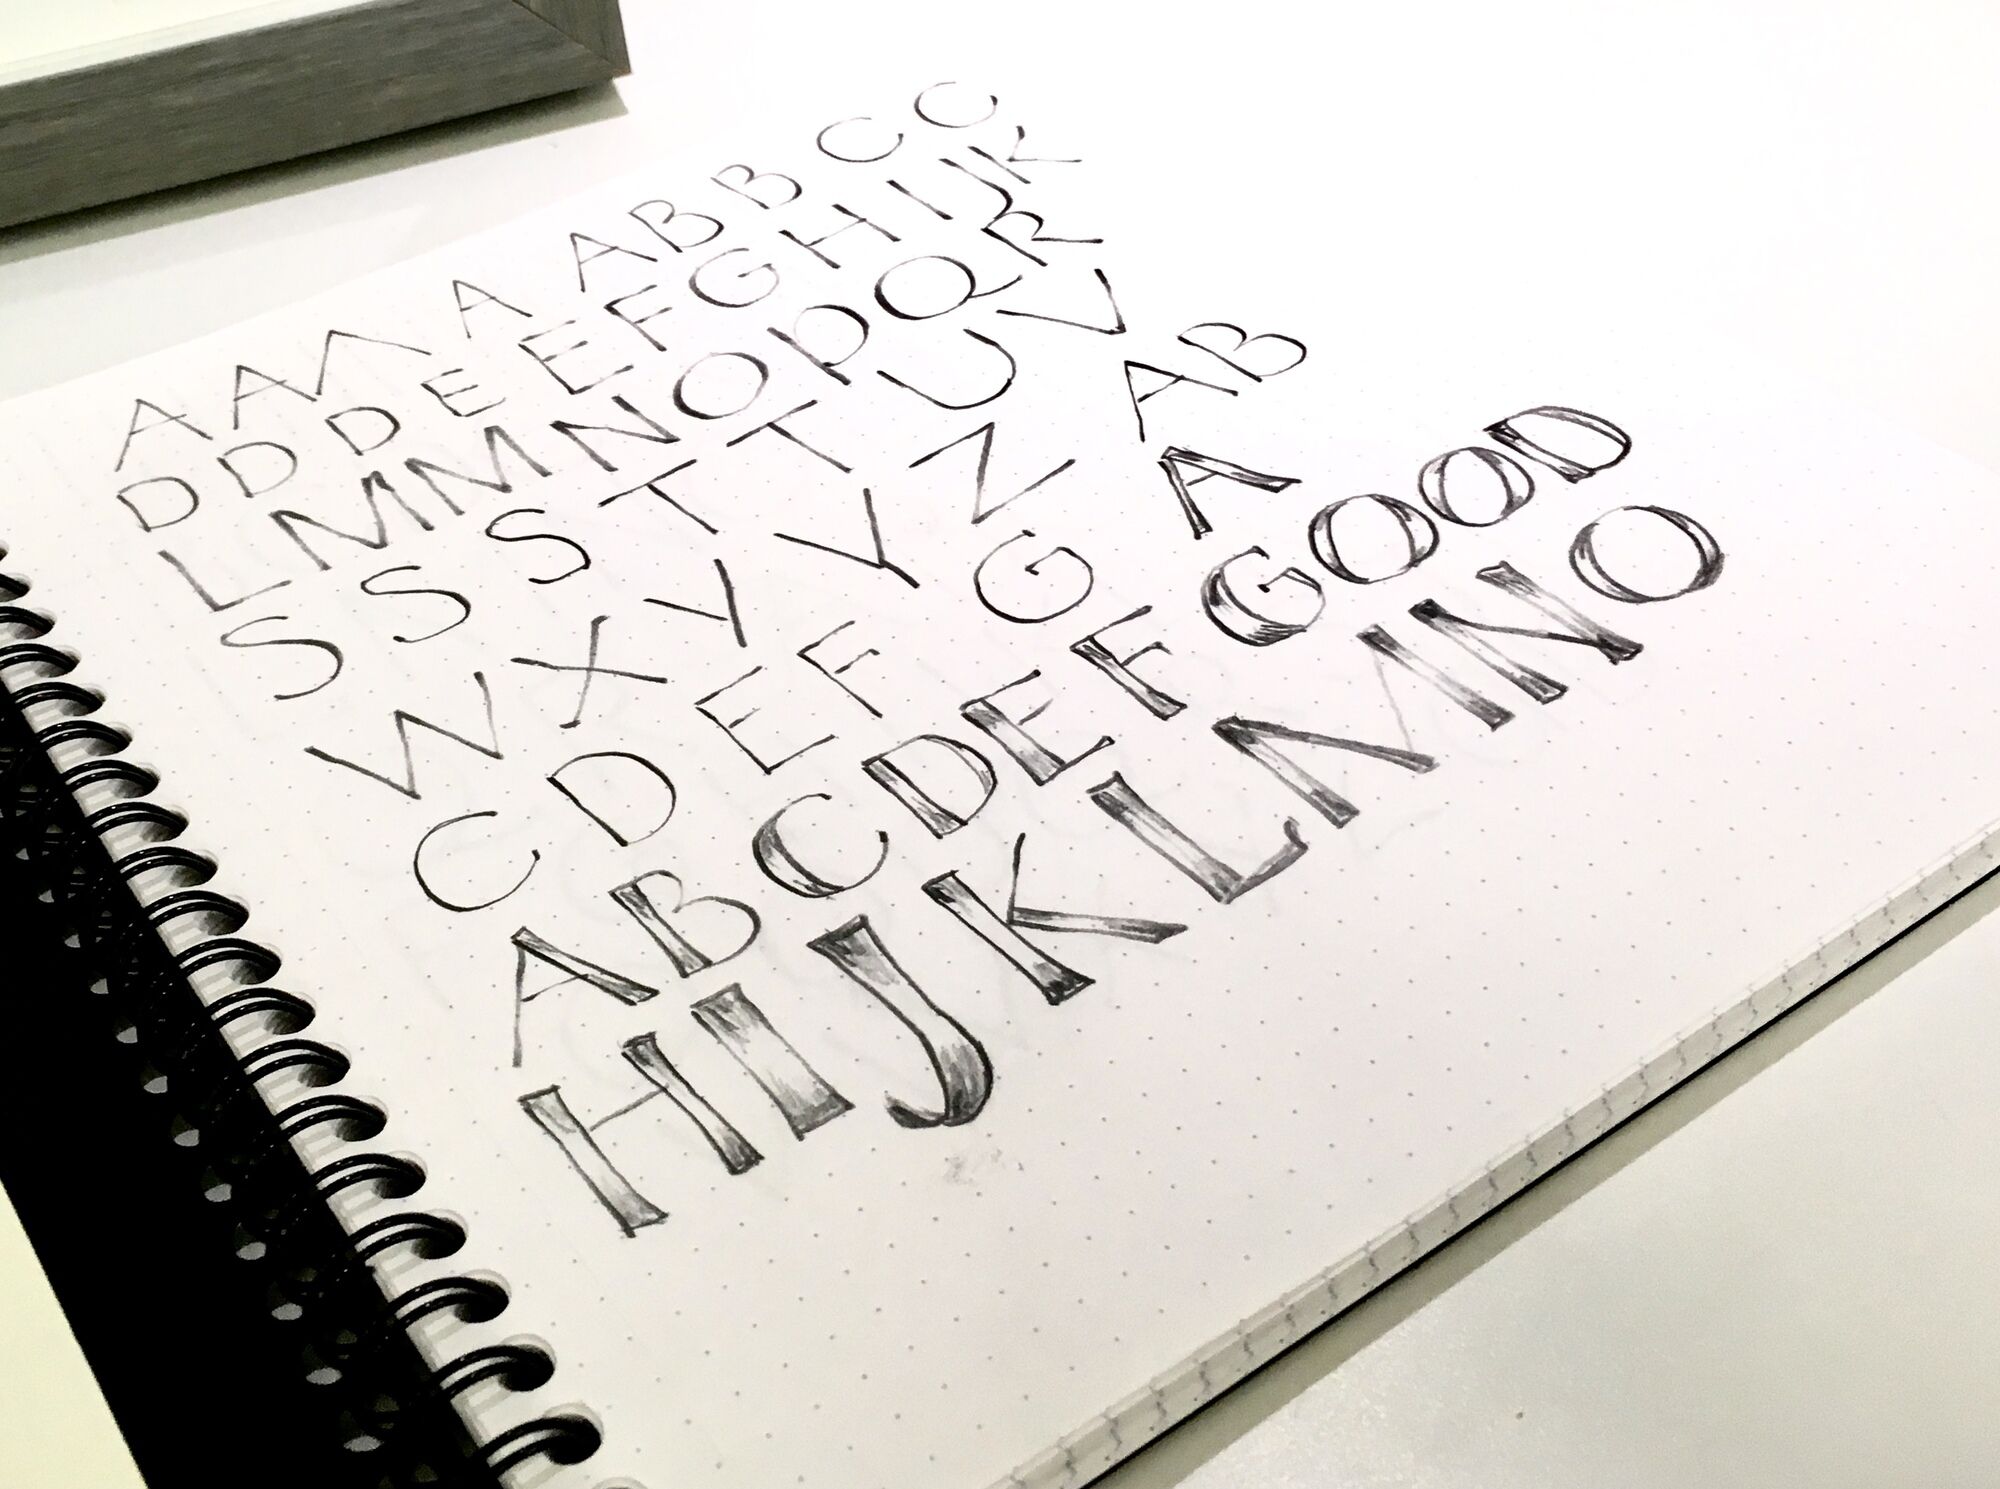 A A Λ A A B B C C
D D D E E F G H I J K
L M M N O P Q R
S S S T T U V
W X Y Y Z A B
C D E F G A
A B C D E F G O O D
H I J K L M N O